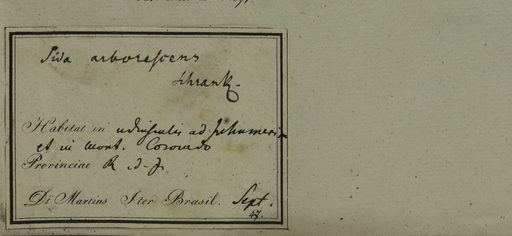 Sida arborescens
Schrank.
Habitat in ad
et in mont. Corcovado
Provinciae R. d. J.
Dr. Martius Iter Brasil. Sept.
47.